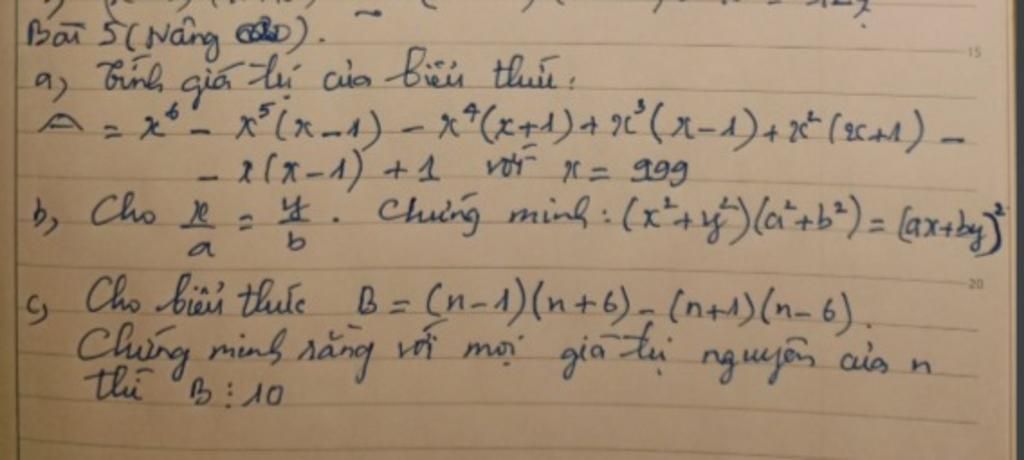 Bài 5 (Nâng cao).
a, Tính giá trị của biểu thức:
A = x⁶ - x⁵(x-1) - x⁴(x+1) + x³(x-1) + x²(x+1) -
- x(x-1) + 1 với x = 999
b, Cho x/a = y/b. Chứng minh: (x²+y²)(a²+b²) = (ax+by)²
c, Cho biểu thức B = (n-1)(n+6) - (n+1)(n-6).
Chứng minh rằng với mọi giá trị nguyên của n
thì B ⋮ 10